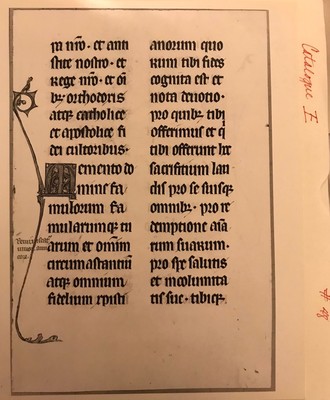 pa nr̃o · et anti
stite nostro · et
Rege nr̃o · et oı̃
bꝰ orthodoxis
atqꝫ catholice
et apostolice fi
dei cultoribus ·
Memento do
mine fa
mulorum fa
mularumqꝫ tu
arum et omniũ
circumastantiũ
atqꝫ omnium
fidelium xpisti
anorum quo
rum tibi fides
cognita est et
nota deuotio ·
pro quibꝰ tibi
offerimus et q̃
tibi offerunt hc̃
sacrificium lau
dis pro se suisqꝫ
omnibꝰ · pro re
demptione aı̃a
rum suarum ·
pro spe salutis
et incolumita
tis sue · tibiqꝫ
Catalogue I
# 48